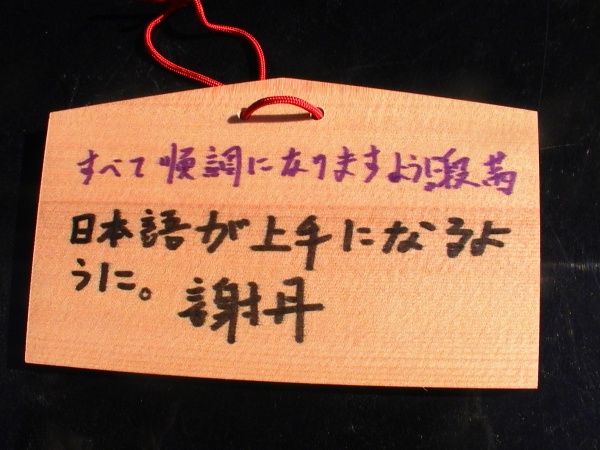 すべて順調になりますように段萬
日本語が上手になるよ
うに。 謝丹